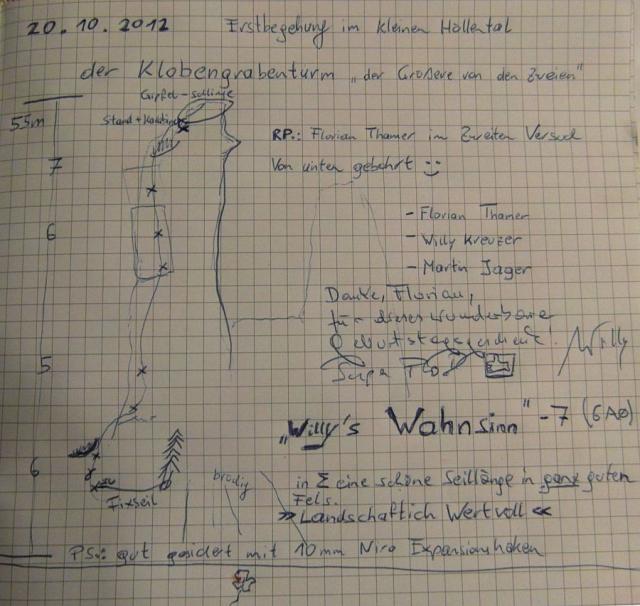 20.10.2012 Erstbegehung im kleinen Höllental
der Klobengrabenturm „der Größere von den Zweien"
Gipfel-schlinge
55m Stand + Karabiner
RP.: Florian Thamer im Zweiten Versuch
7 Von unten gebohrt
- Florian Thamer
6 - Willy Kreuzer
- Martin Jager
Danke, Florian,
für dieses wunderbare
Geburtstagsgeschenk!
Willy
5
„Willy's Wahnsinn" -7 (6A0)
6 brüchig in Σ eine schöne Seillänge in ganz guten
Fels.
Fixseil » Landschaftlich Wertvoll «
PS.: gut gesichert mit 10mm Niro Expansionshaken